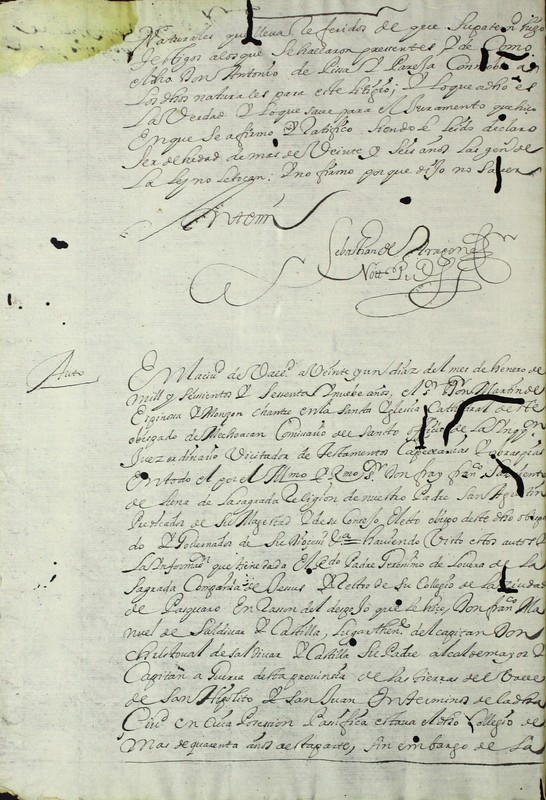 Naturales que lleva referidos de que supate hizo
testigos a los que se hallaron presentes y de como
el dho Don Antonio de
Los dhos naturales para este litigio; y lo que a dho es
La Verdad y lo que save para el Juramento que hizo
En que se afirmo y ratifico siendole leido declaro
Ser de hedad de mas de Veinte y Seis años las gen.s de
La Ley no le tocan; y no firmo por que dijo no saver
Antemi
Sebastian de Aragon
Nott.o Pu.co
Auto
En la ciu.d de Vall.d a Veinte y un dias del mes de henero de
mill y seiscientos y Setenta y nuebe años, el S.r D.r Don Martin de
Espinosa y Monzon chantre en la Santa Iglesia Cathedral deste
obispado de Mechoacan Comisario del Santo officio de la Inqq.on
Juez ordinario Visitador de Testamentos Capellanias y obras pias
En todo el por el Illmo y R.mo S.r Don fray fran.co Sarmiento
de Luna de la sagrada Religion de nuestro Padre San Agustin
Predicador de Su Magestad y de su Consejo, electo obispo deste dho obispa
do y Governador de Su Haviendo Visto estos autos y
La Informaz.n que tiene dada El R.do Padre Jeronimo de Lovera de la
Sagrada Compañia de Jesus Retor de su Collegio de la Ciudad
de Pasquaro En rason del despojo que le hizo Don fran.co Ma
nuel de Saldivar y Castilla, Lugarthen.te del capitan Don
christoval de Saldivar y Castilla Su Padre alcalde mayor y
Capitan a guerra desta provinsia de las tierras del Valle
de San Hipolito y San Juan En terminos de la dha
Ciu.d en Cuia Posesion Pasifica estava el dho Collegio de
Mas de quarenta años a esta parte, Sin embargo de la